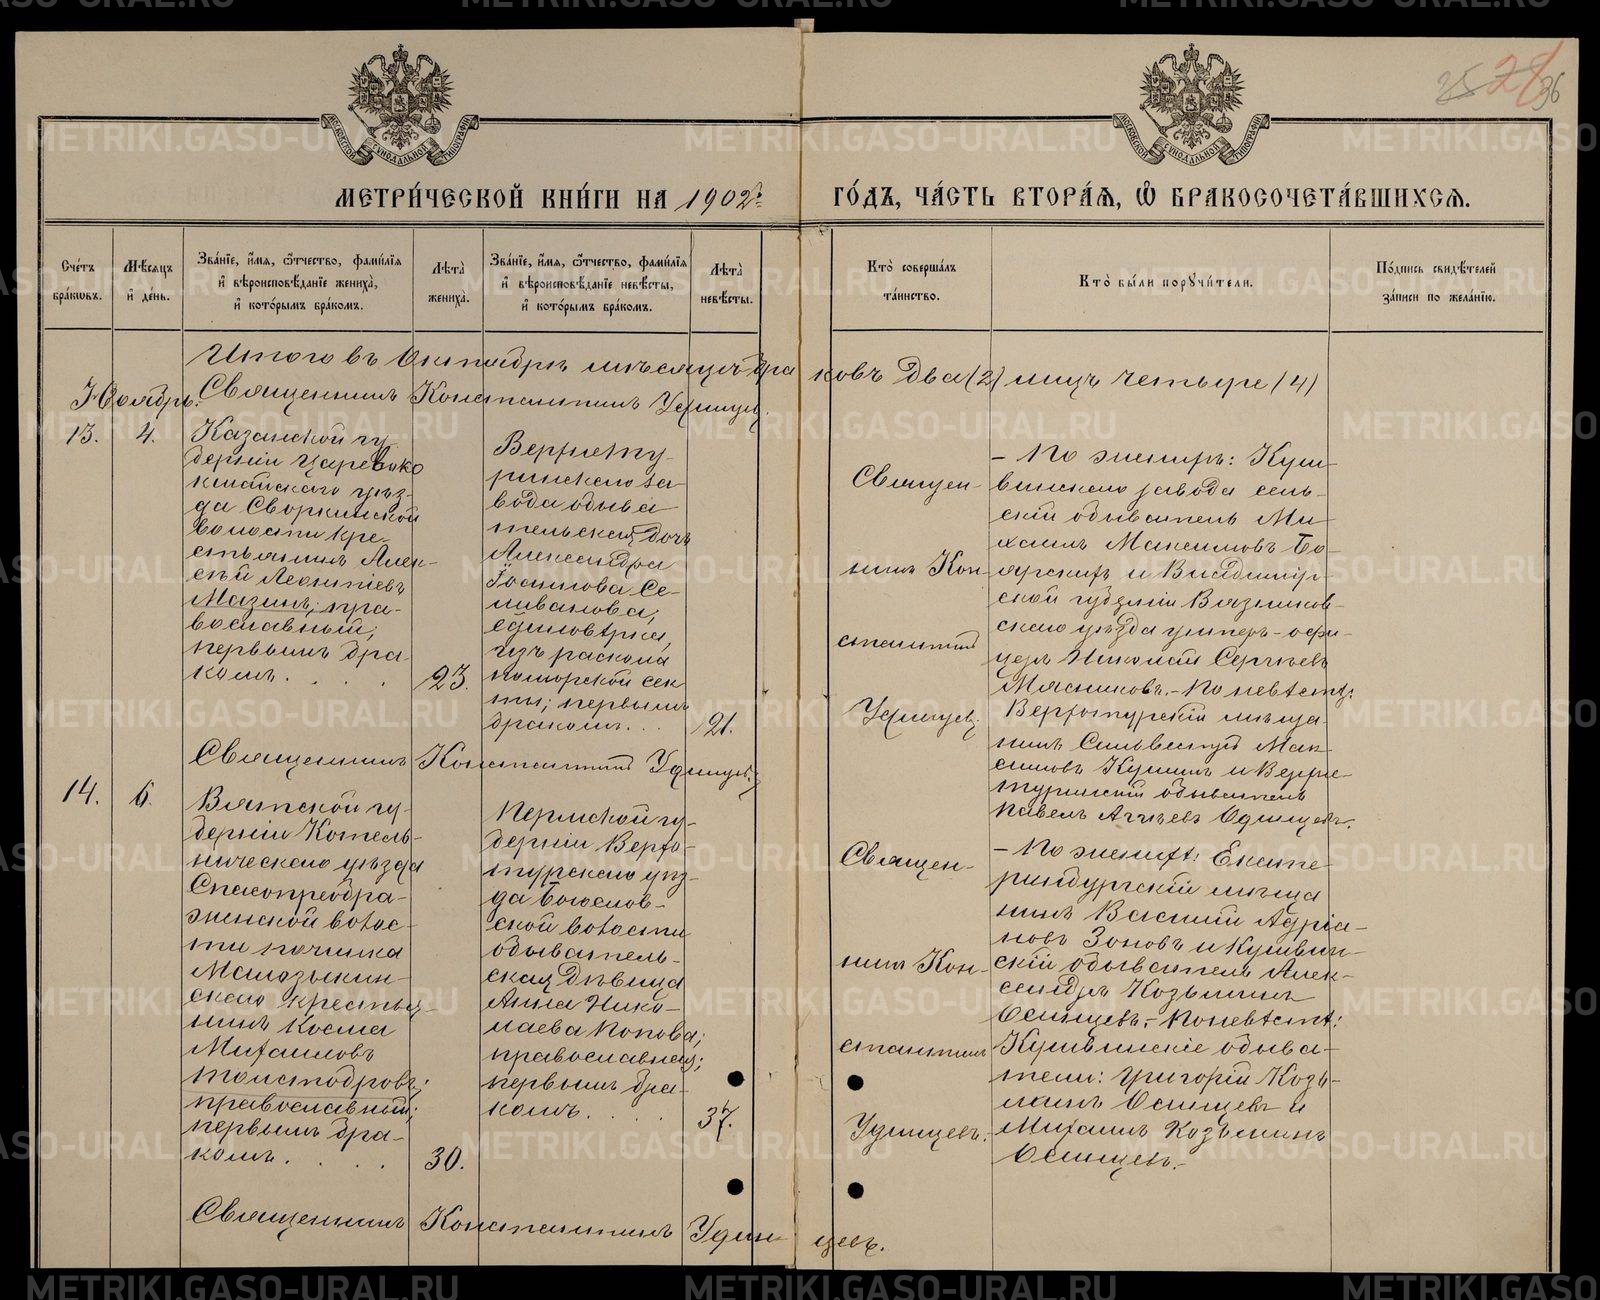 МЕТРИ́ЧЕСКОЙ КНИ́ГИ НА 1902й ГО́ДЪ, ЧА́СТЬ ВТОРА́Я, Ѡ БРАКОСОЧЕТА́ВШИХСЯ.
Сче́тъ бра́ковъ.
Мѣ́сяцъ и де́нь.
Зва́нїе, и́мя, ѻ́тчество, фами́лїя
и҆ вѣроисповѣ́данїе жениха̀,
и҆ кото́рымъ бра́комъ.
Лѣта̀ жениха̀.
Зва́нїе, и́мя, ѻ́тчество, фами́лїя
и҆ вѣроисповѣ́данїе невѣ́сты,
и҆ кото́рымъ бра́комъ.
Лѣта̀ невѣ́сты.
Кто̀ соверша́лъ та́инство.
Кто̀ бы́ли порꙋчи́тели.
По́дпись свидѣ́телей
за́писи по жела́нїю.
Итого въ Октябрѣ мѣсяцѣ бра ковъ два (2) лицъ четыре (4)
Священникъ Константинъ Удинцев.
Ноябрь.
13.
4.
Казанской гу-
берніи Царевоко
кшайскаго уѣз-
да Своркинской
волости кре-
стьянинъ Алек-
сѣй Леонтіевъ
Мазинъ, пра-
вославный,
первымъ бра-
комъ . . . .
23.
Верхнету-
ринскаго за-
вода обыва
тельская дочь
Александра
Іоаннова Се-
ливанова,
единовѣрка,
изъ раскола
поморской сек
ты; первымъ
бракомъ. . .
21.
Священ-
никъ Кон-
стантинъ
Удинцев.
– По женихѣ: Куш-
винскаго завода сель-
скій обыватель Ми-
хаилъ Максимовъ Бо-
ярскихъ и Владимір-
ской губерніи Вязников-
скаго уѣзда унтеръ-офи-
церъ Николай Сергѣевъ
Мясниковъ. – По невѣстѣ:
Верхотурскій мѣща-
нинъ Силвестръ Мак-
симовъ Кушинъ и Верхне-
туринскій обыватель
Павелъ Агѣевъ Одинцевъ.
Священникъ Константинъ Удинцев.
14.
6.
Вятской гу-
берніи Котель-
ническаго уѣзда
Спасопреобра-
женской волос-
ти починка
Малозыкин-
скаго крестья-
нинъ Косма
Михаиловъ
Толстобровъ;
православный;
первымъ бра-
комъ . . . .
30.
Пермской гу-
берніи Верхо-
турскаго уѣз-
да Богослов-
ской волости
обыватель-
ская дѣвица
Анна Нико-
лаева Попова;
православная;
первымъ бра-
комъ. . . .
37.
Священ-
никъ Кон-
стантинъ
Удинцевъ.
– По женихѣ: Екате-
ринбургскій мѣща
нинъ Василій Адріа-
новъ Зоновъ и Кушвин-
скій обыватель Алек-
сандръ Козьминъ
Осинцевъ. – По невѣстѣ:
Кушвинскіе обыва-
тели: Григорій Козь-
минъ Осинцевъ и
Михаилъ Козьминъ
Осинцевъ. –
Священникъ Константинъ Удин цевъ.
METRIKI.GASO-URAL.RU